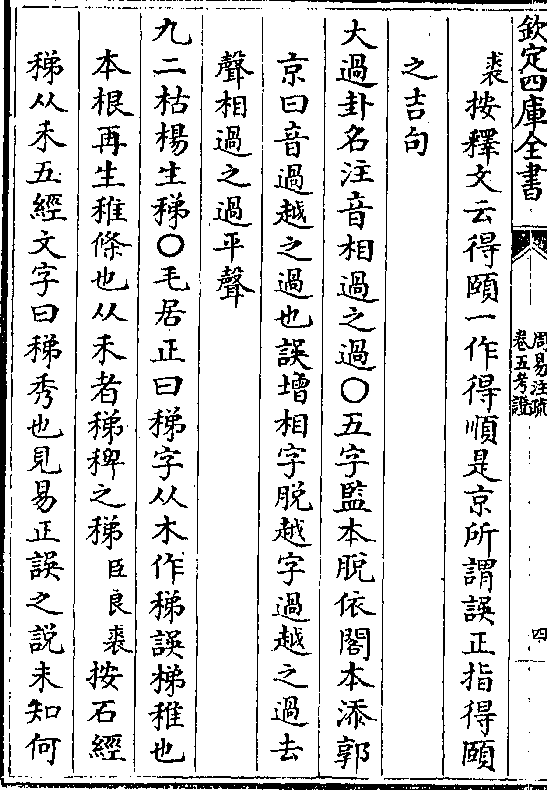 欽定四庫全書
周易注疏
卷五考證
四
裘按釋文云得頤一作得順是京所謂誤正指得頤
之吉句
大過卦名注音相過之過〇五字監本脫依閣本添郭
京曰音過越之過也誤增相字脫越字過越之過去
聲相過之過平聲
九二枯楊生稊〇毛居正曰稊字从木作稊誤梯稚也
本根再生稚條也从禾者稊稗之稊臣良裘按石經
稊从禾五經文字曰稊秀也見易正誤之說未知何